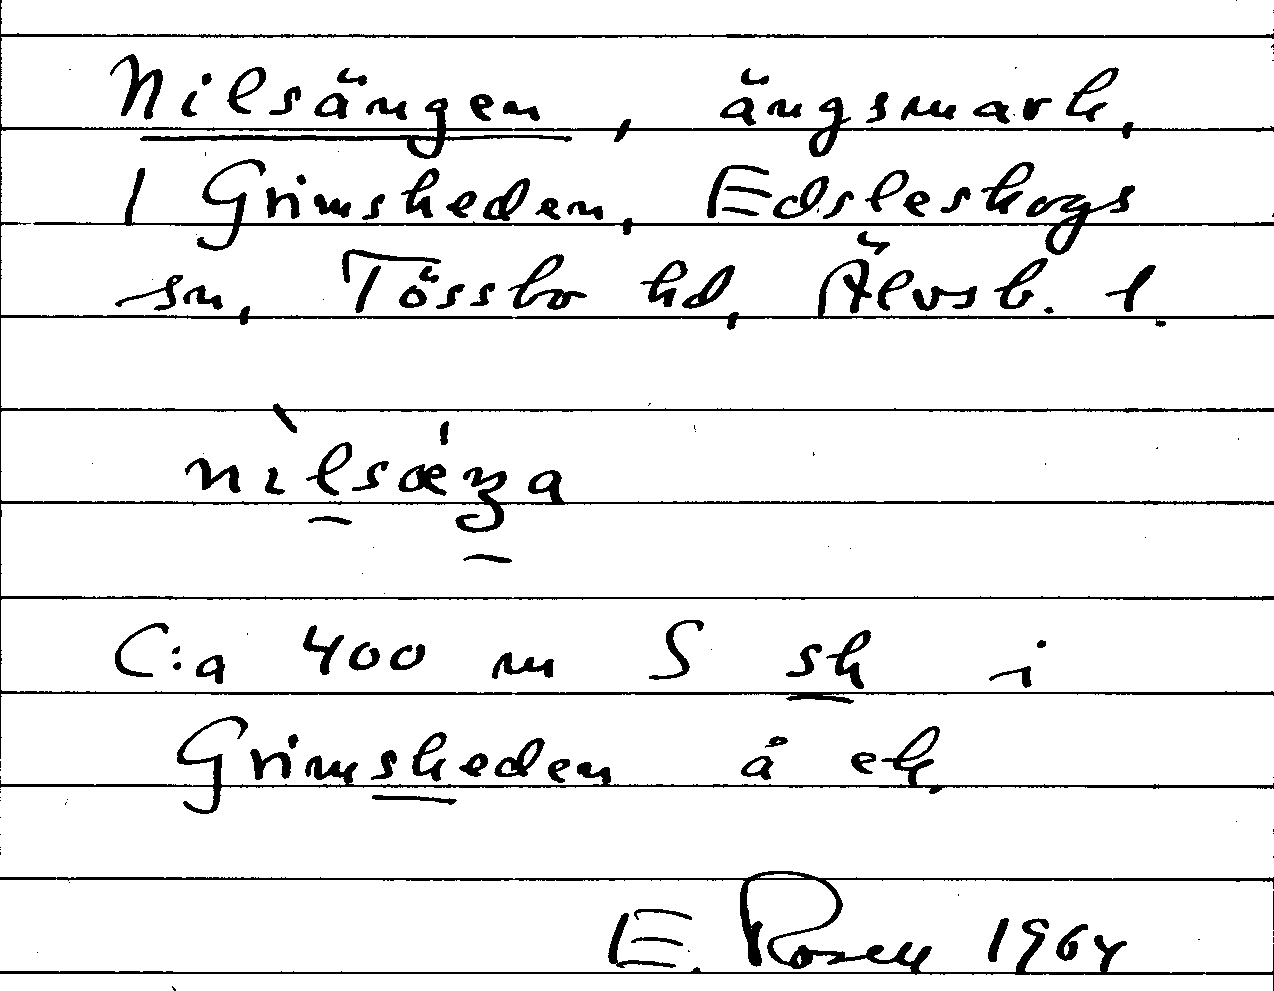 Nilsängen, ängsmark,
1 Grimsheden, Edsleskogs
sn, Tössbo hd, Älvsb. l.
C:a 400 m S sk i
Grimsheden å ek.
E. Rosell 1964